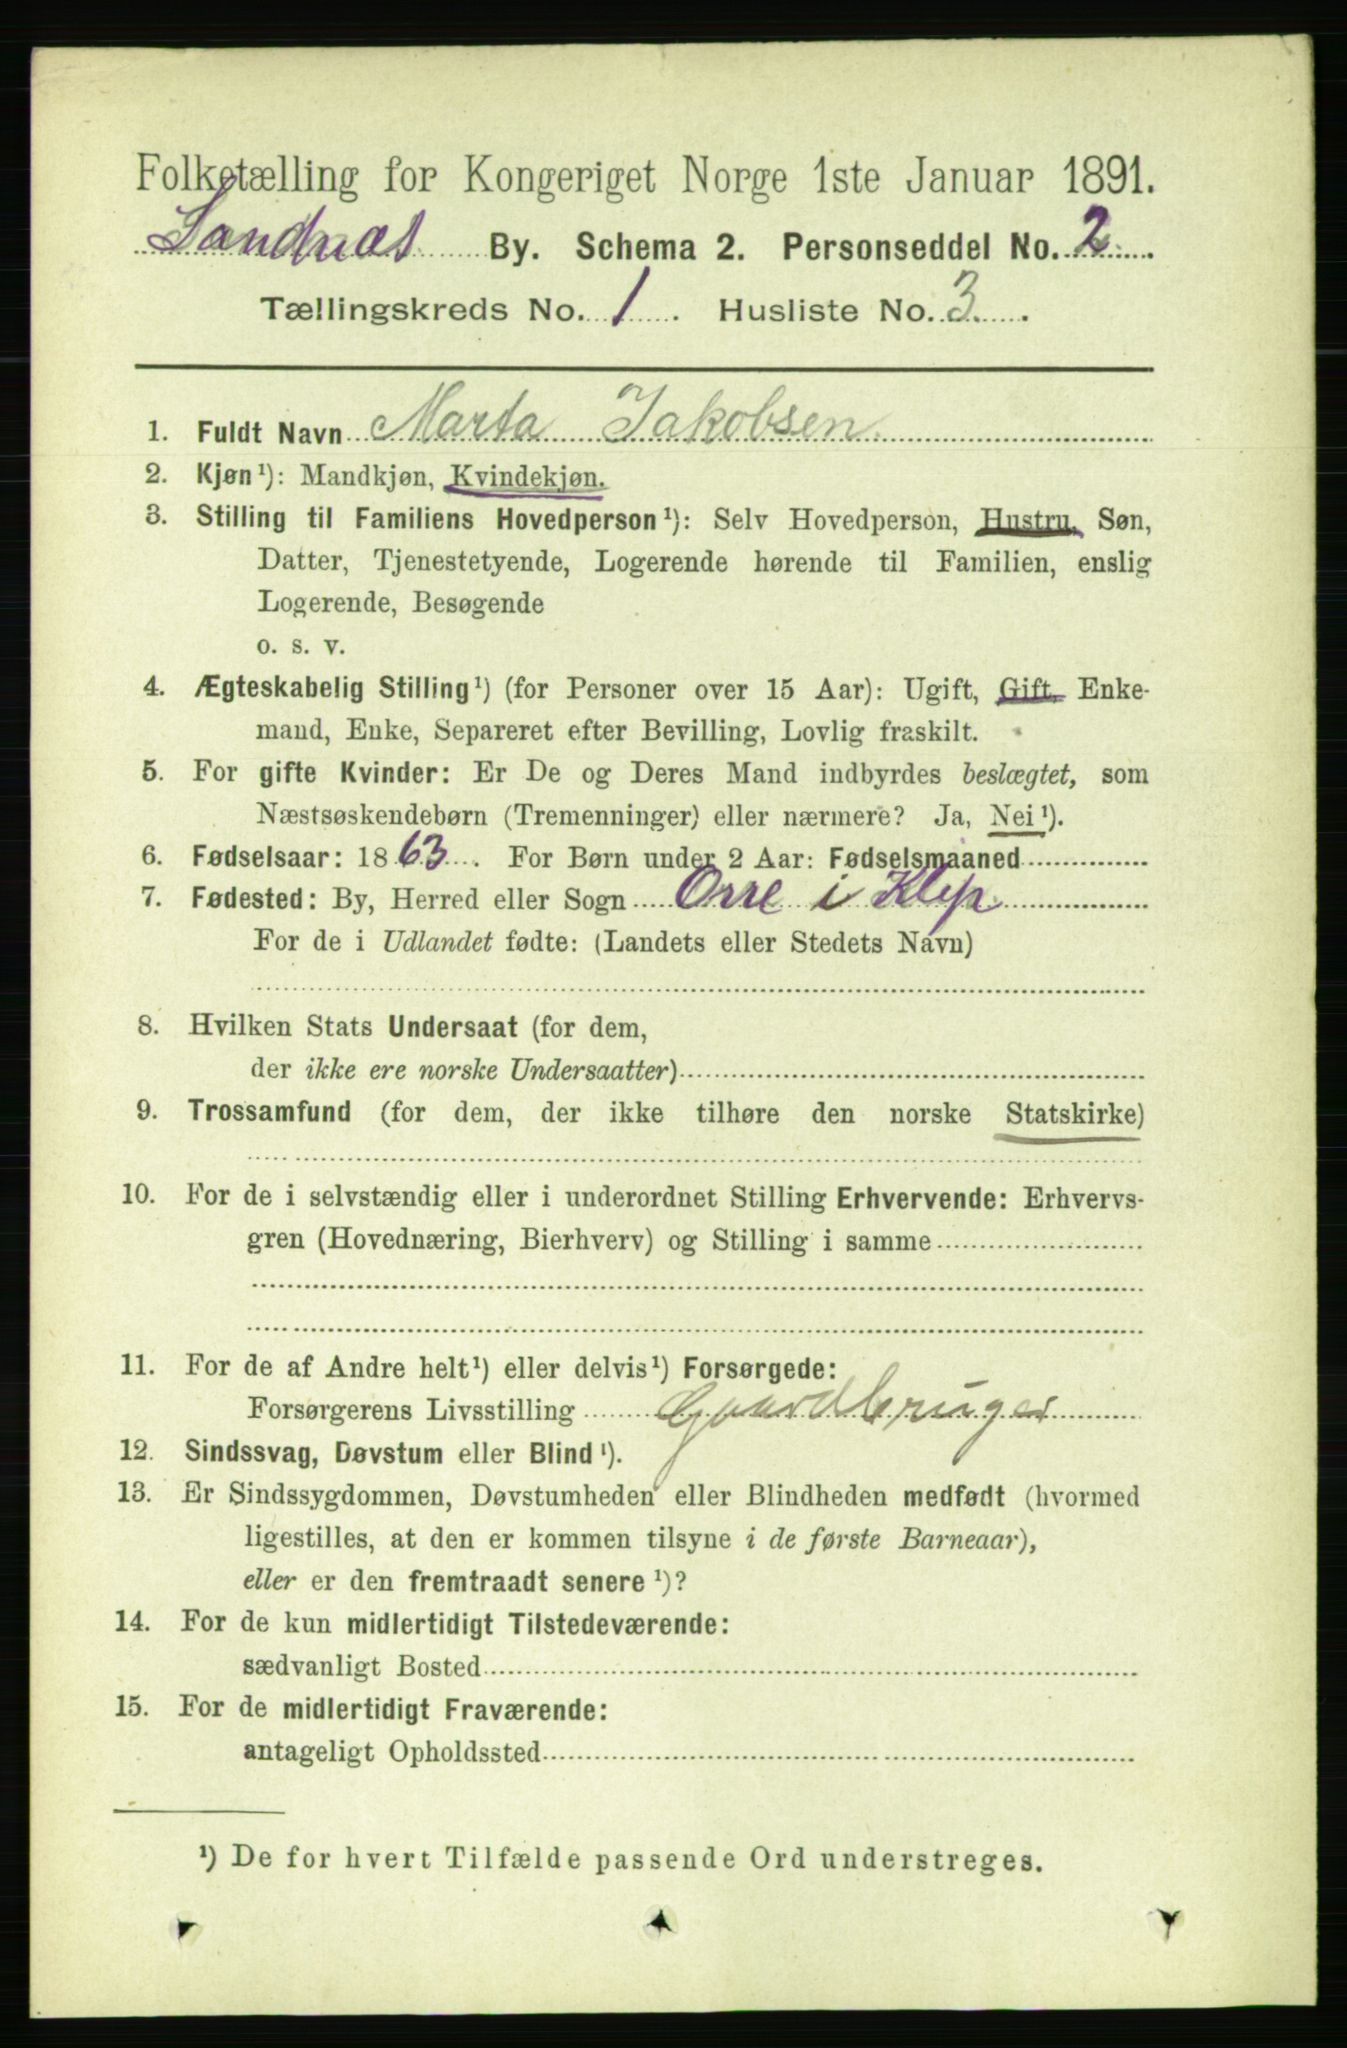 Folketælling for Kongeriget Norge 1ste Januar 1891.
Sandnæs By. Schema 2. Personseddel No. 2
Tællingskreds No. 1. Husliste No. 3.
1. Fuldt Navn Marta Jakobsen
2. Kjøn¹): Mandkjøn, Kvindekjøn.
3. Stilling til Familiens Hovedperson¹): Selv Hovedperson, Hustru, Søn,
Datter, Tjenestetyende, Logerende hørende til Familien, enslig
Logerende, Besøgende
o. s. v.
4. Ægteskabelig Stilling¹) (for Personer over 15 Aar): Ugift, Gift, Enke-
mand, Enke, Separeret efter Bevilling, Lovlig fraskilt.
5. For gifte Kvinder: Er De og Deres Mand indbyrdes beslægtet, som
Næstsøskendebørn (Tremenninger) eller nærmere? Ja, Nei¹).
6. Fødselsaar: 1863. For Børn under 2 Aar: Fødselsmaaned
7. Fødested: By, Herred eller Sogn Orre i Klep
For de i Udlandet fødte: (Landets eller Stedets Navn)
8. Hvilken Stats Undersaat (for dem,
der ikke ere norske Undersaatter)
9. Trossamfund (for dem, der ikke tilhøre den norske Statskirke)
10. For de i selvstændig eller i underordnet Stilling Erhvervende: Erhvervs-
gren (Hovednæring, Bierhverv) og Stilling i samme
11. For de af Andre helt¹) eller delvis¹) Forsørgede:
Forsørgerens Livsstilling Gaardbruger
12. Sindssvag, Døvstum eller Blind¹).
13. Er Sindssygdommen, Døvstumheden eller Blindheden medfødt (hvormed
ligestilles, at den er kommen tilsyne i de første Barneaar),
eller er den fremtraadt senere¹)?
14. For de kun midlertidigt Tilstedeværende:
sædvanligt Bosted
15. For de midlertidigt Fraværende:
antageligt Opholdssted
¹) De for hvert Tilfælde passende Ord understreges.